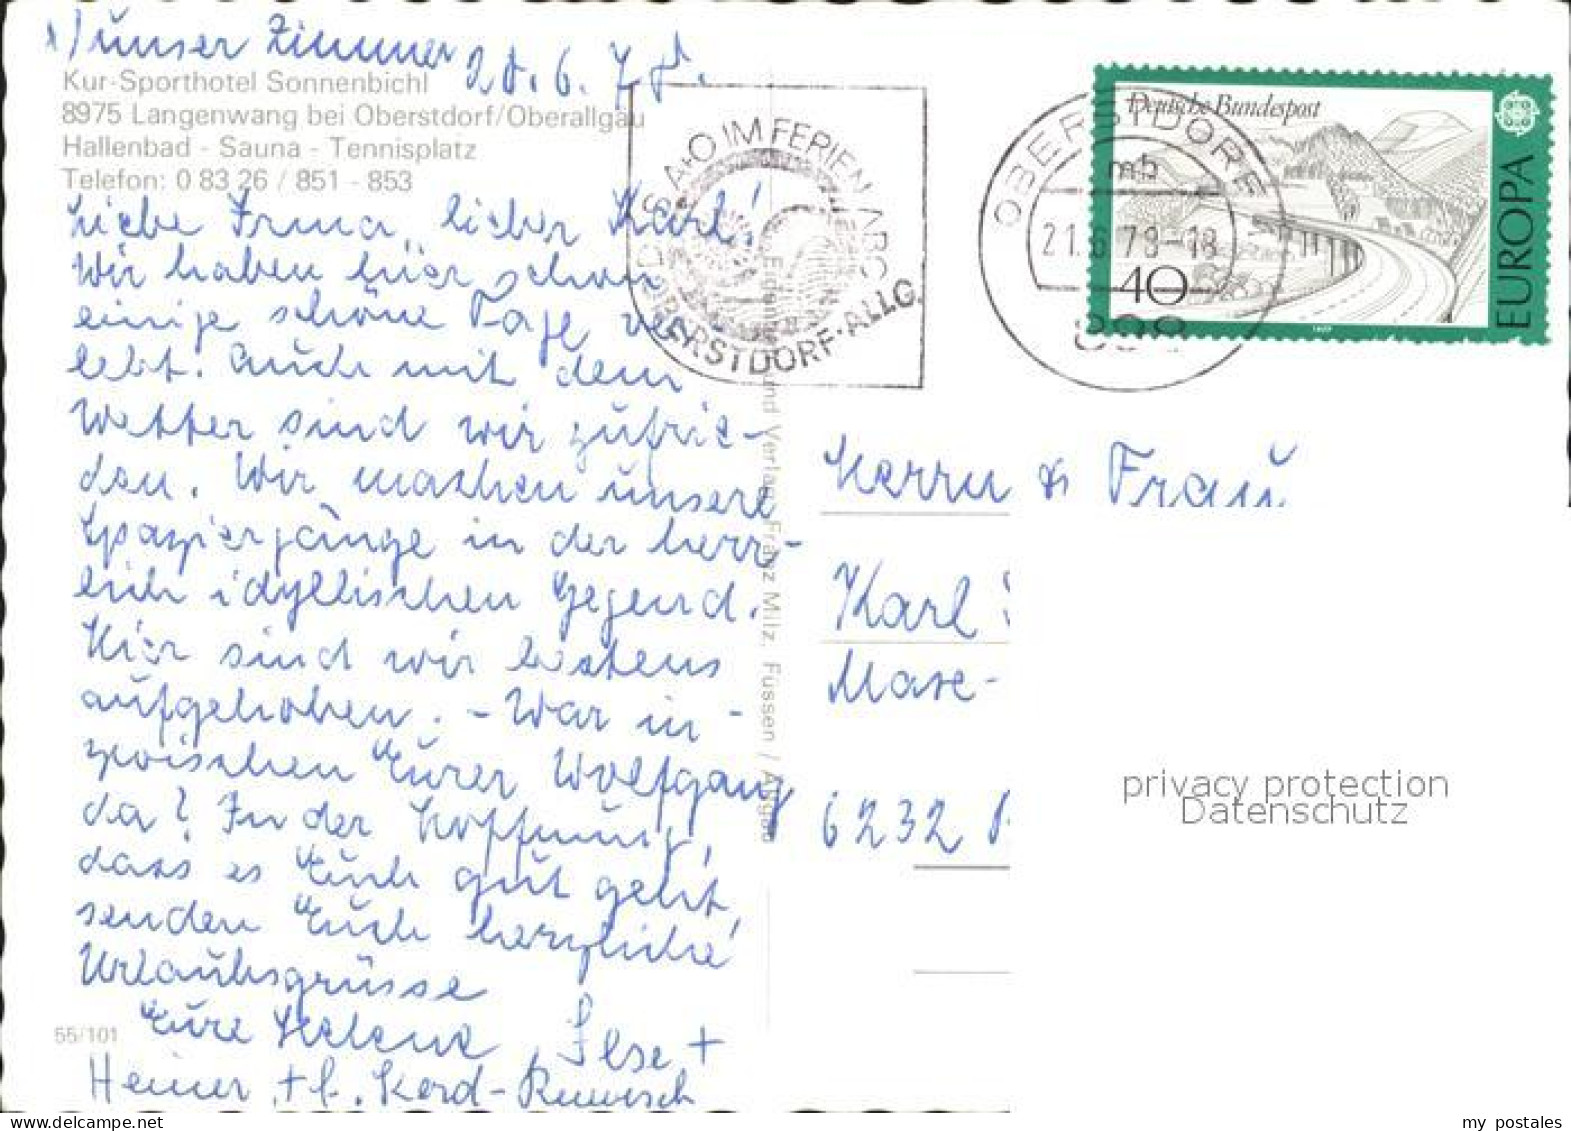 x) unser Zimmer
20.6.78.
Kur-Sporthotel Sonnenbichl
8975 Langenwang bei Oberstdorf/Oberallgäu
Hallenbad - Sauna - Tennisplatz
Telefon: 0 83 26 / 851 - 853
Liebe Irma, lieber Karl!
Wir haben hier schon
einige schöne Tage ver
lebt. Auch mit dem
Wetter sind wir zufrie-
den. Wir machen unsere
Spaziergänge in der herr-
lich idyllischen Gegend.
Hier sind wir bestens
aufgehoben. - War in-
zwischen Eurer Wolfgang
da? In der Hoffnung,
dass es Euch gut geht,
senden Euch herzliche
Urlaubsgrüsse
Eure Helene, Ilse +
Heiner
55/101
und Verlag Franz Milz, Füssen / Allgäu
DAS A+O IM FERIEN-ABC
OBERSTDORF-ALLG.
OBERSTDORF
mb
21.6.78-18
898
Deutsche Bundespost
40
EUROPA
Herrn & Frau
Karl
6232
privacy protection
Datenschutz
my_postales